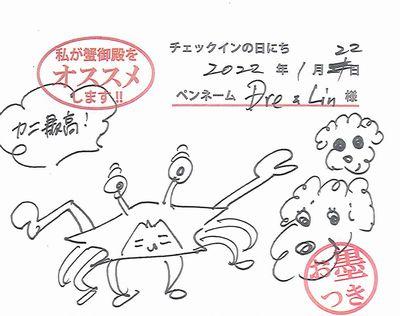 私が蟹御殿を
オススメ
します!!
チェックインの日にち
2022年1月22日
ペンネーム Dre & Lin 様
カニ最高!
お墨
つき